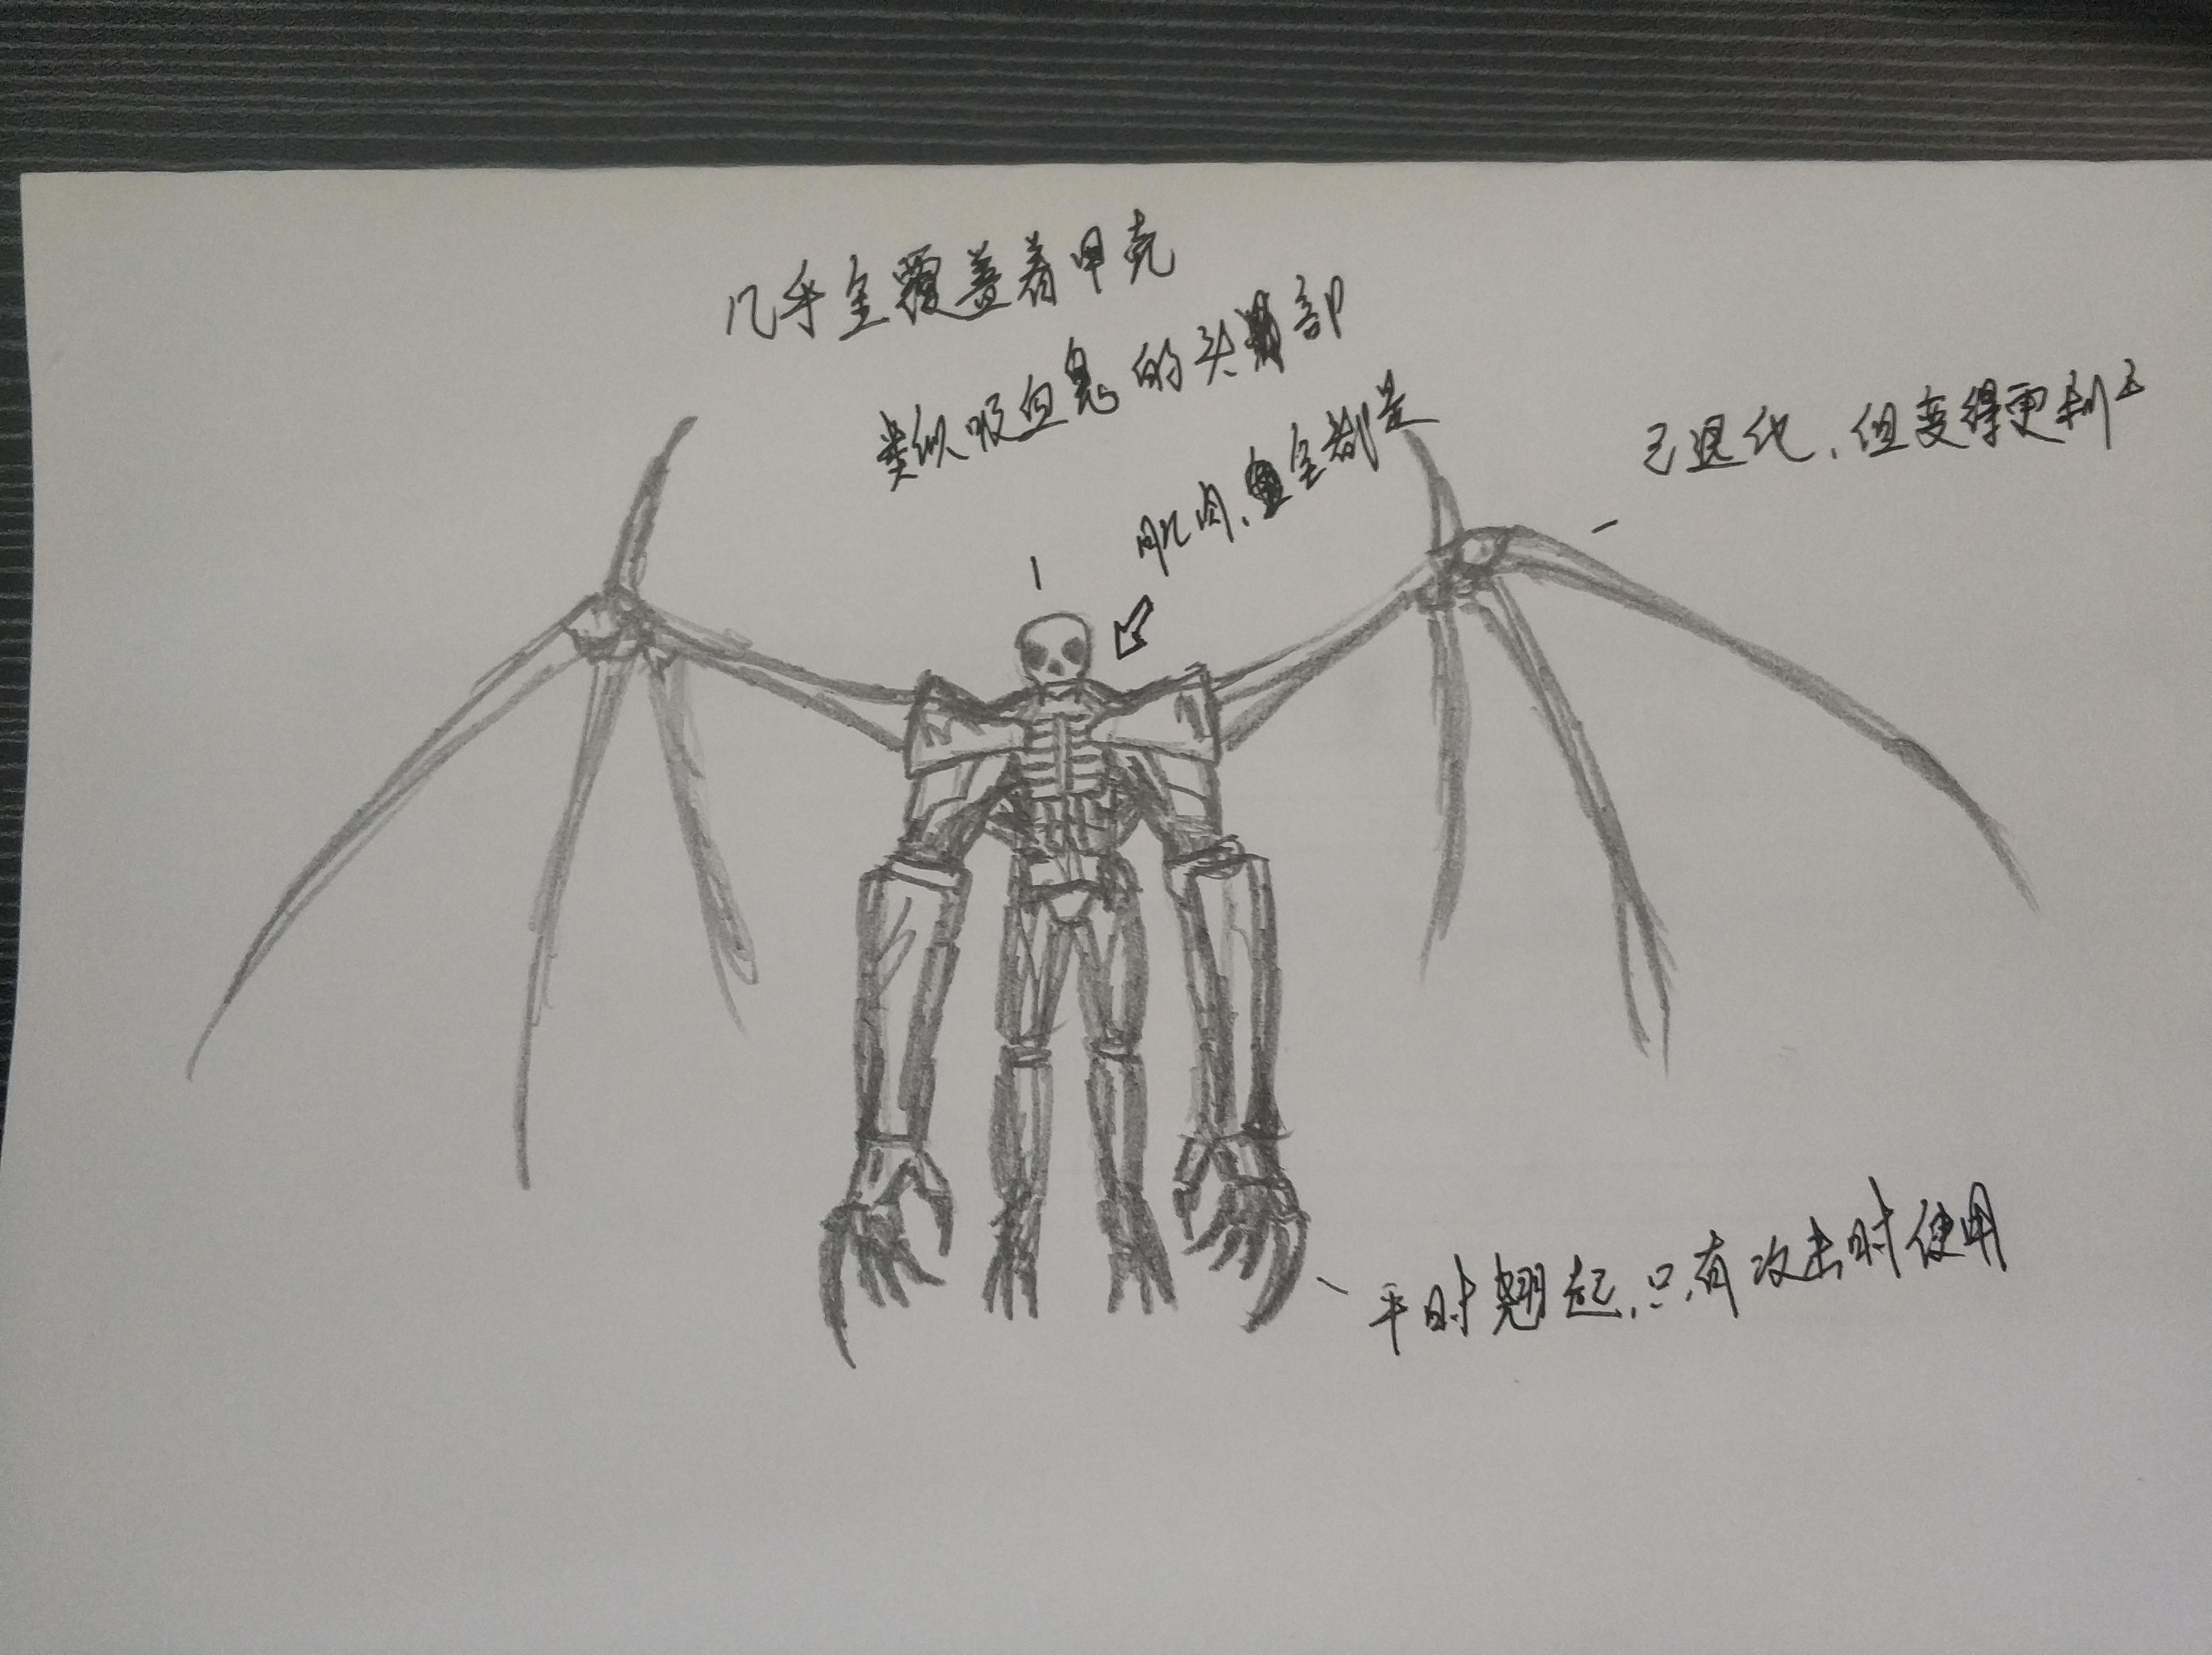 几乎全覆盖着甲壳
类似吸血鬼的头部
肌肉，全都是
已退化，但变得更利
平时翘起，只有攻击时使用